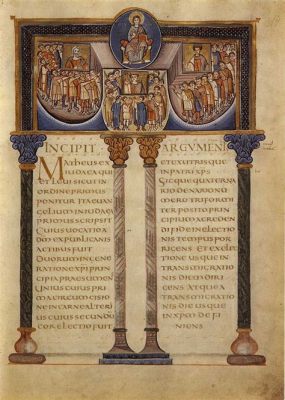 INCIPIT
MATHEUS EX
IUDAEA QUI
ET LEUI SICUT IN
ORDINE PRIMUS
PONITUR ITA EUAN
GELIUM IN IUDAEA
PRIMUS SCRIPSIT
CUIUS UOCATIO AD
DM EX PUBLICANIS
ACTIBUS FUIT
DUORUM IN GENE
RATIONE XPI PRIN
CIPIA PRAESUMENS
UNIUS CUIUS PRI
MA CIRCUMCISIO
IN CARNE ALTERI
US CUIUS SECUNDU
COR ELECTIO FUIT
ARGUMEN
ET EX UTRISQUE
IN PATRIB XPS
SICQUE QUATERNA
RIO DENARIO NU
MERO TRIFORMI
TER POSITO PRIN
CIPIUM A CREDEN
DI FIDE IN ELECTIO
NIS TEMPUS POR
RIGENS ET EX ELEC
TIONE USQUE IN
TRANSMIGRATI
ONIS DIEM DIRI
GENS ATQUE A
TRANSMIGRATI
ONE USQUE
IN XPM DEFI
NIENS